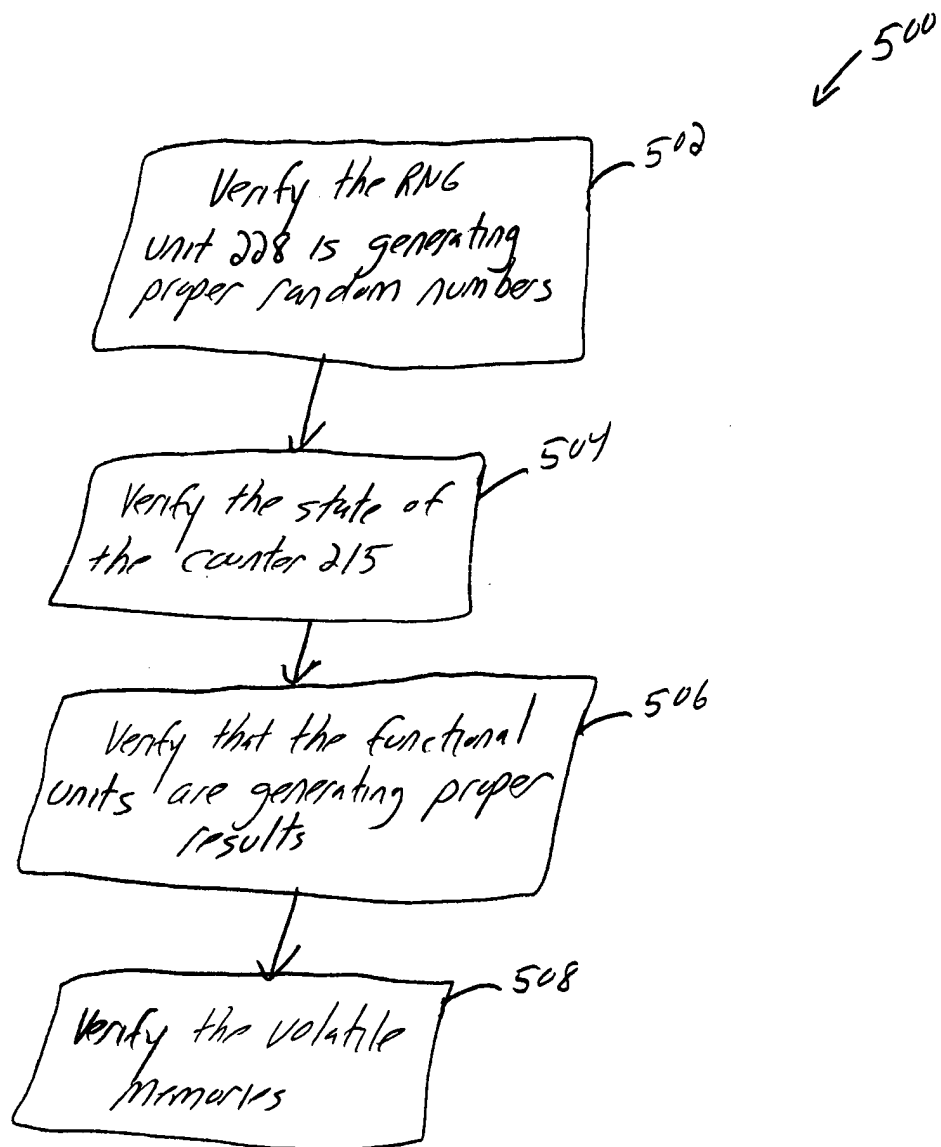 500
502
Verify the RNG
unit 228 is generating
proper random numbers
504
Verify the state of
the counter 215
506
Verify that the functional
units are generating proper
results
508
Verify the volatile
memories